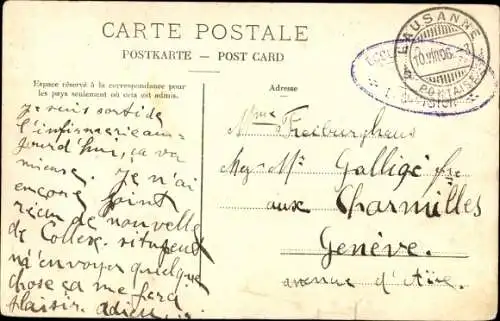 CARTE POSTALE
POSTKARTE — POST CARD
Espace réservé à la correspondance pour
les pays seulement où cela est admis.
Adresse
LAUSANNE
10.VIII.06
PONTAISE
Je suis sorti de
l'infirmerie aujourd'hui, ça va
mieux. Je n'ai
encore point
reçu de nouvelle
de Collex. si tu peux
m'envoyer quelque
chose ça me fera
plaisir. adieu
Mme Freiburghaus
chez Mr Galligé fre
aux Charmilles
Genève.
avenue d'Aïre.